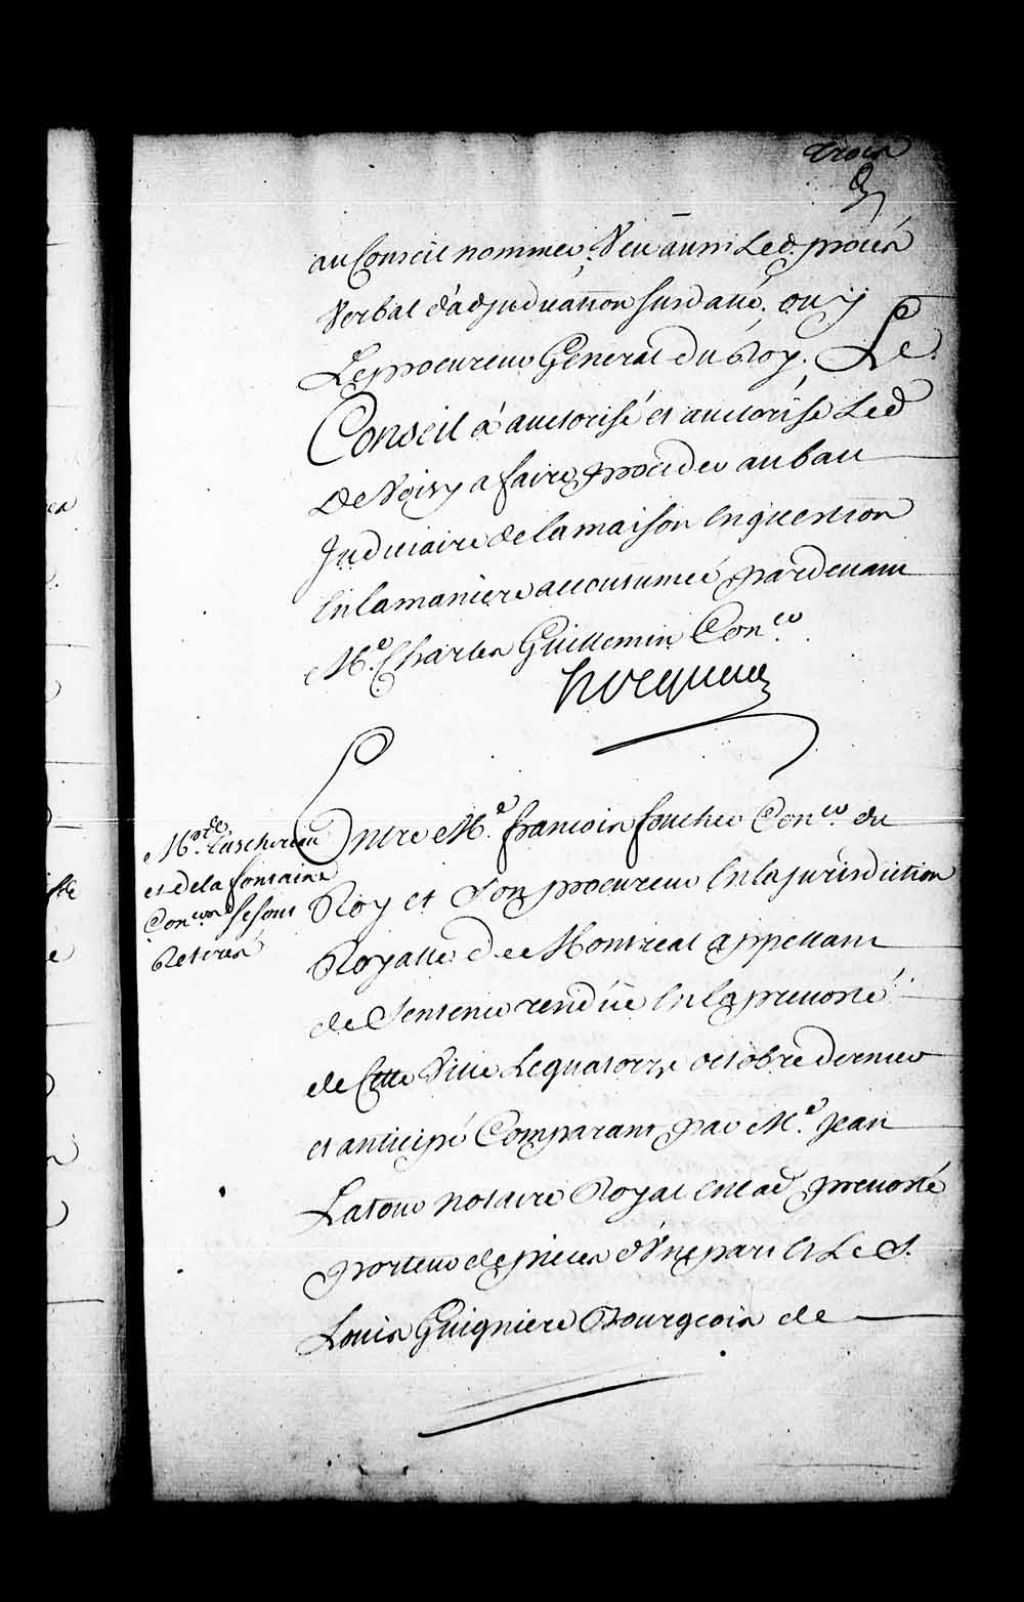 trois
au Conseil nommer; Veu aussi Led. procés
Verbal d'adjudication susdatté. ouy
Le procureur General du Roy. Le
Conseil à auctorisé et auctorise Led
De Voisy a faire proceder au bail
Judiciaire de la maison En question
En la maniere accoutumeé pardevant
Me. Charles Guillemin Coner.
hocquart
Entre Me. francois foucher Coner. du
Roy et Son procureur En la jurisdiction
Royalle De Montreal appellant
de Sentence rendüe En la prevosté
de Cette Ville Le quatorze octobre dernier
et anticipé Comparant par Me. Jean
Latour notaire Royal En lad prevosté
porteur de pieces d'Une part Et Le S.
Louis Guigniere Bourgeois de
Mrs. de Tascherau
et de la fontaine
Coners Se sont
Retirés